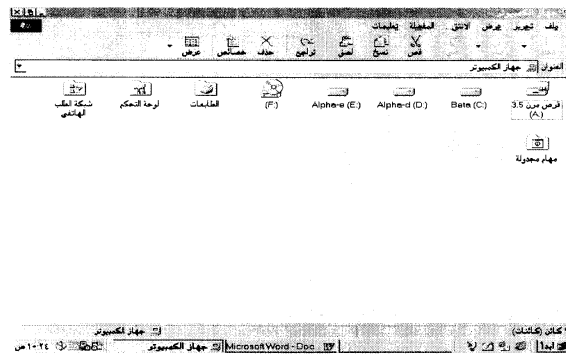 ملف تحرير عرض الانتق المفضلة تعليمات
قص نسخ لصق تراجع حذف خصائص عرض
العنوان جهاز الكمبيوتر
قرص مرن 3.5 (A:)
Beta (C:)
Alpha-d (D:)
Alpha-e (E:)
(F:)
الطابعات
لوحة التحكم
شبكة الطلب الهاتفي
مهام مجدولة
كائن (كائنات)
جهاز الكمبيوتر
ابدأ
Microsoft Word - Doc
جهاز الكمبيوتر
١٠:٢٤ ص